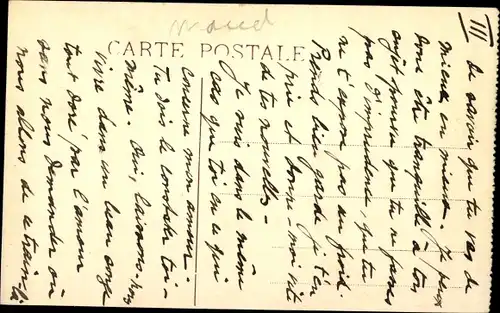 Maud
CARTE POSTALE
III
de savoir que tu vas de
mieux en mieux. Je peux
donc être tranquille à ton
sujet pourvu que tu ne fasses
pas d'imprudence, que tu
ne t'expose pas au froid.
Prends bien garde je t'en
prie et donne-moi vite
de tes nouvelles -
Je suis dans le même
cas que toi en ce qui
concerne mon amour.
Tu dois le constater toi-
même. Oui, laissons-nous
vivre dans un beau songe
tout doré par l'amour
sans nous demander où
nous allons de ce train-là